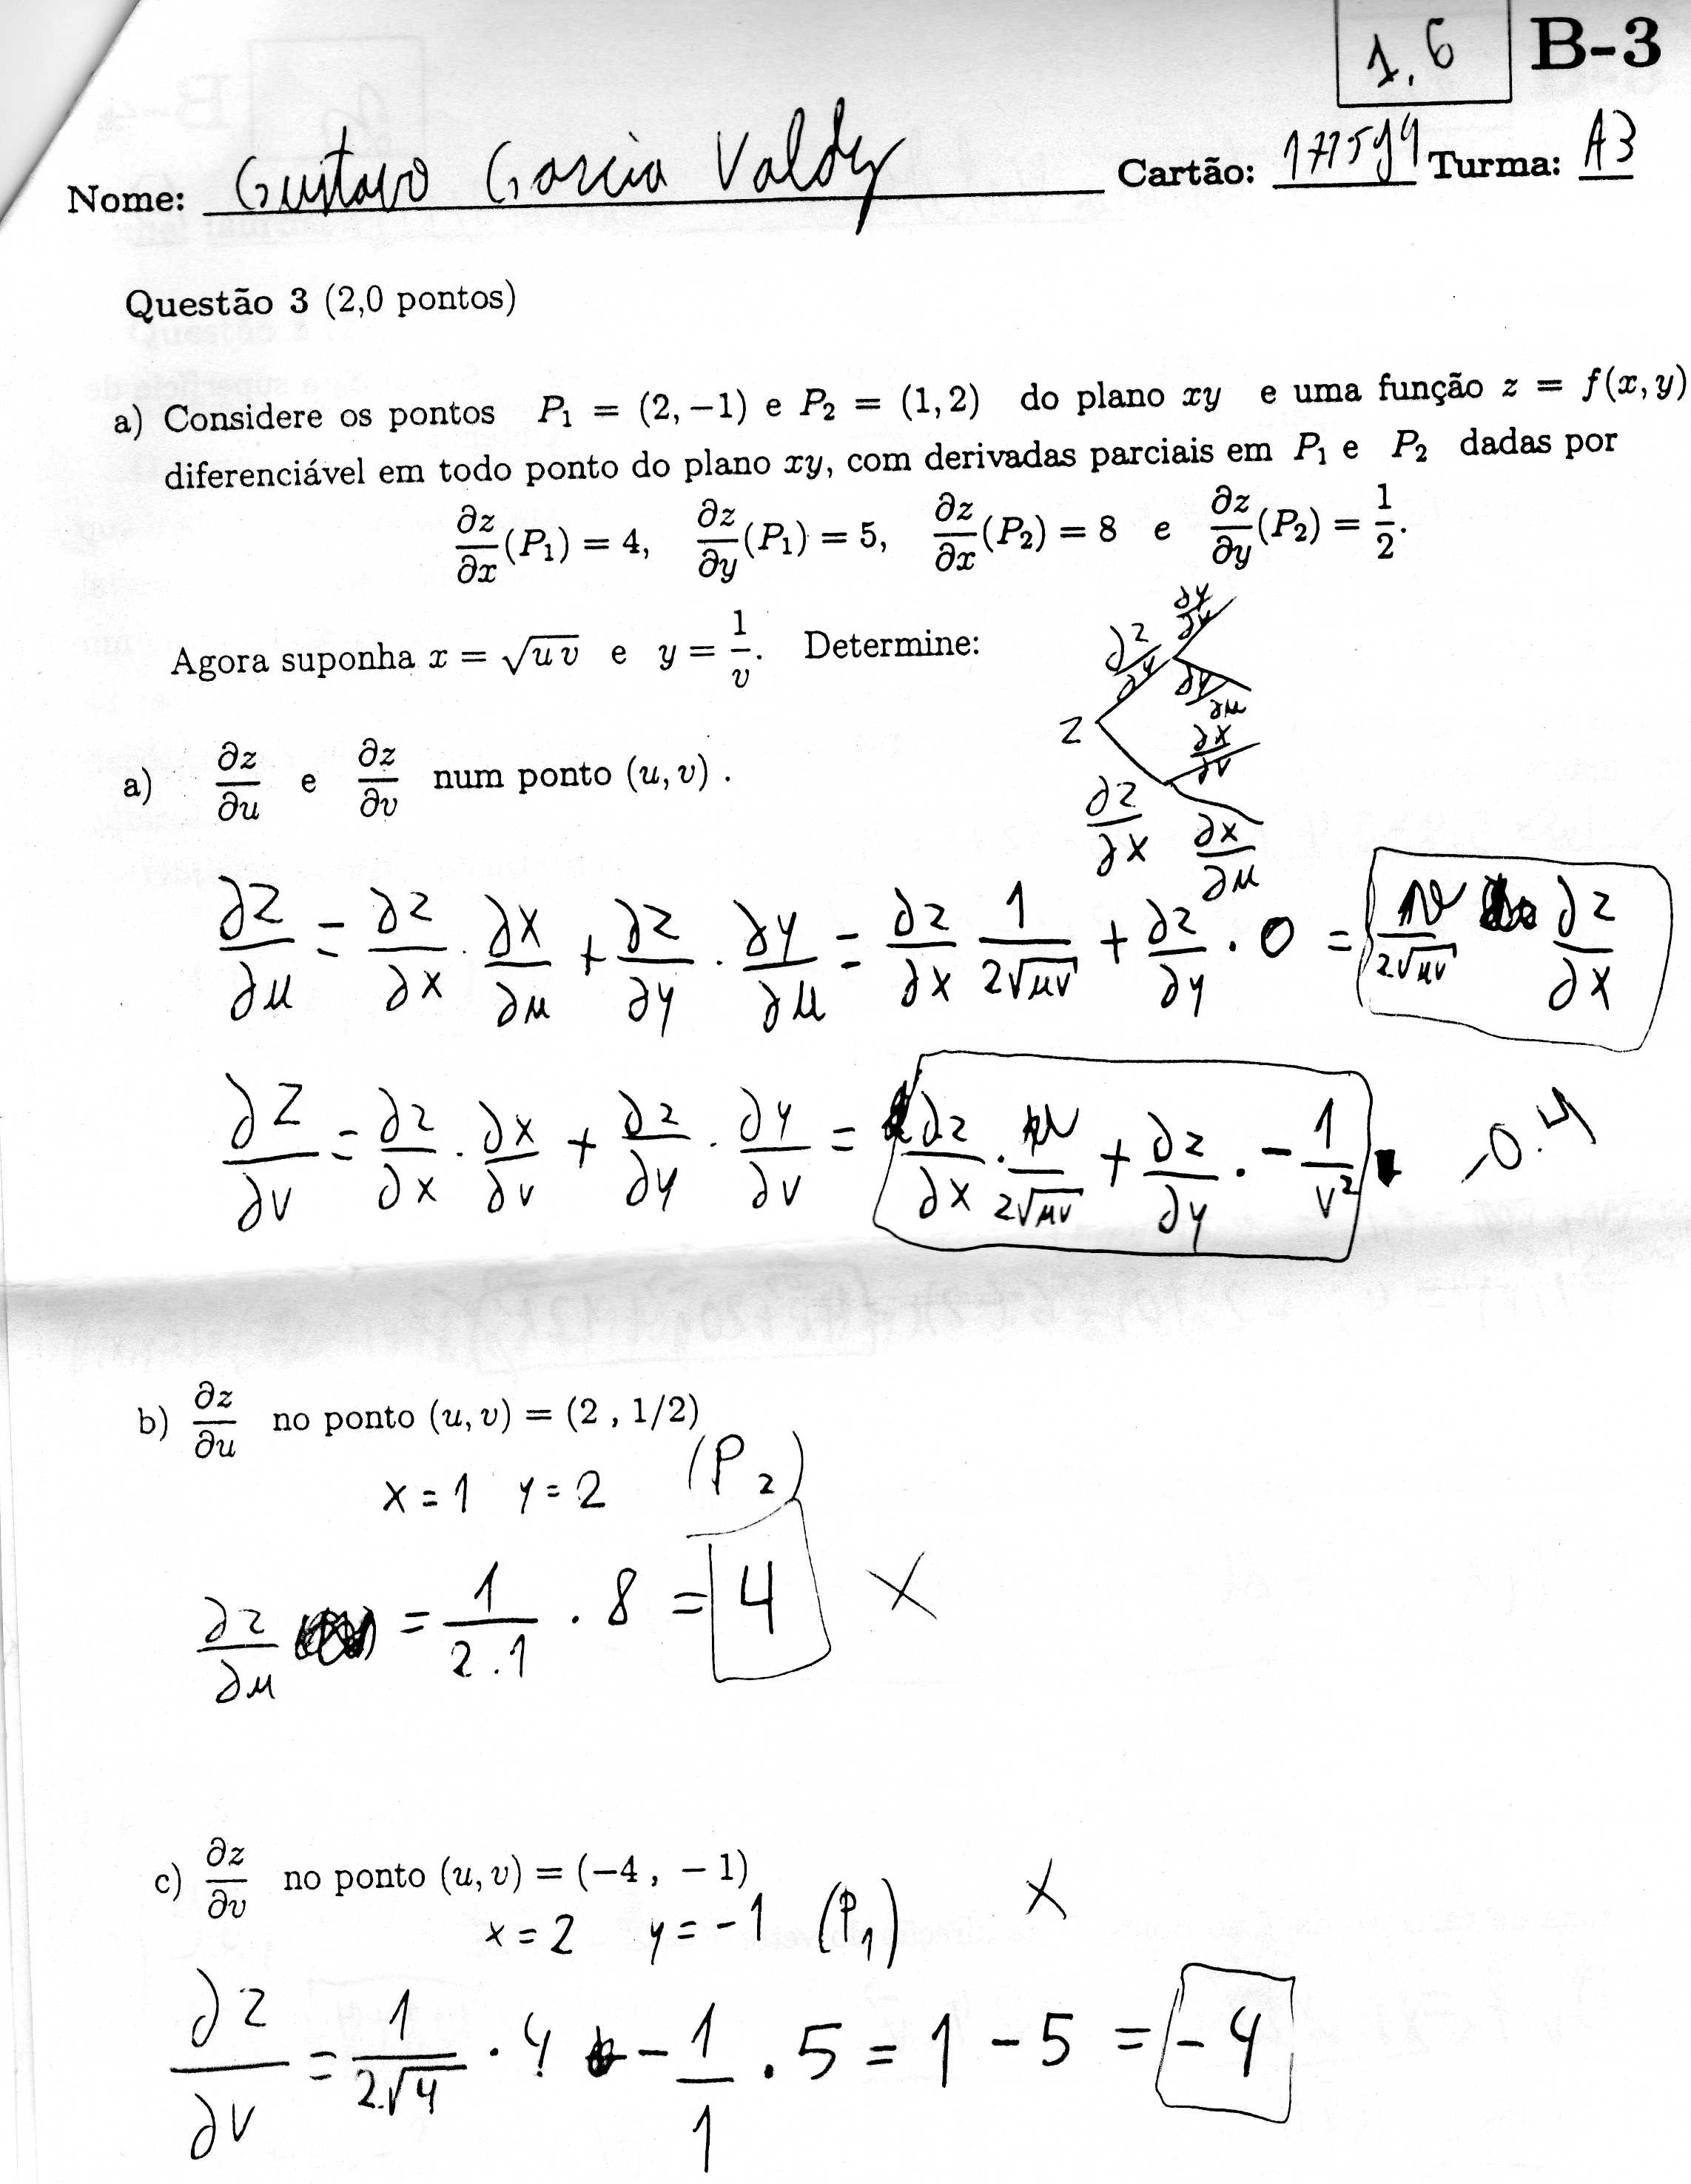 1,6 B-3
Nome: Gustavo Garcia Valdy Cartão: 171594 Turma: A3
Questão 3 (2,0 pontos)
a) Considere os pontos P₁ = (2, −1) e P₂ = (1, 2) do plano xy e uma função z = f(x, y)
diferenciável em todo ponto do plano xy, com derivadas parciais em P₁ e P₂ dadas por
∂z/∂x (P₁) = 4, ∂z/∂y (P₁) = 5, ∂z/∂x (P₂) = 8 e ∂z/∂y (P₂) = 1/2.
Agora suponha x = √(u v) e y = 1/v. Determine:
z ∂z/∂y ∂y/∂u ∂z/∂x ∂x/∂v ∂x/∂u
a) ∂z/∂u e ∂z/∂v num ponto (u, v) .
∂z/∂u = ∂z/∂x · ∂x/∂u + ∂z/∂y · ∂y/∂u = ∂z/∂x 1/(2√(uv)) + ∂z/∂y · 0 = v/(2√(uv)) ∂z/∂x
∂z/∂v = ∂z/∂x · ∂x/∂v + ∂z/∂y · ∂y/∂v = ∂z/∂x · u/(2√(uv)) + ∂z/∂y · −1/v² -0.4
b) ∂z/∂u no ponto (u, v) = (2 , 1/2)
x = 1 y = 2 (P₂)
∂z/∂u = 1/(2.1) · 8 = 4 X
c) ∂z/∂v no ponto (u, v) = (−4 , −1)
x = 2 y = −1 (P₁) X
∂z/∂v = 1/(2√4) · 4 − 1/1 · 5 = 1 − 5 = −4